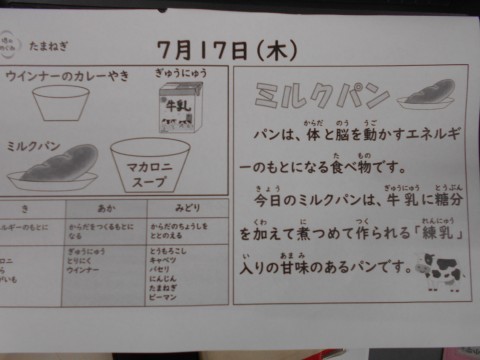 たまねぎ
7月17日(木)
ウインナーのカレーやき
ぎゅうにゅう
牛乳
ミルクパン
マカロニ
スープ
き
あか
みどり
ルギーのもとに
からだをつくるもとに
なる
からだのちょうしを
ととのえる
ロニ
ら
がいも
ぎゅうにゅう
とりにく
ウインナー
とうもろこし
キャベツ
パセリ
にんじん
たまねぎ
ピーマン
ミルクパン
パンは、体と脳を動かすエネルギ
ーのもとになる食べ物です。
今日のミルクパンは、牛乳に糖分
を加えて煮つめて作られる「練乳」
入りの甘味のあるパンです。